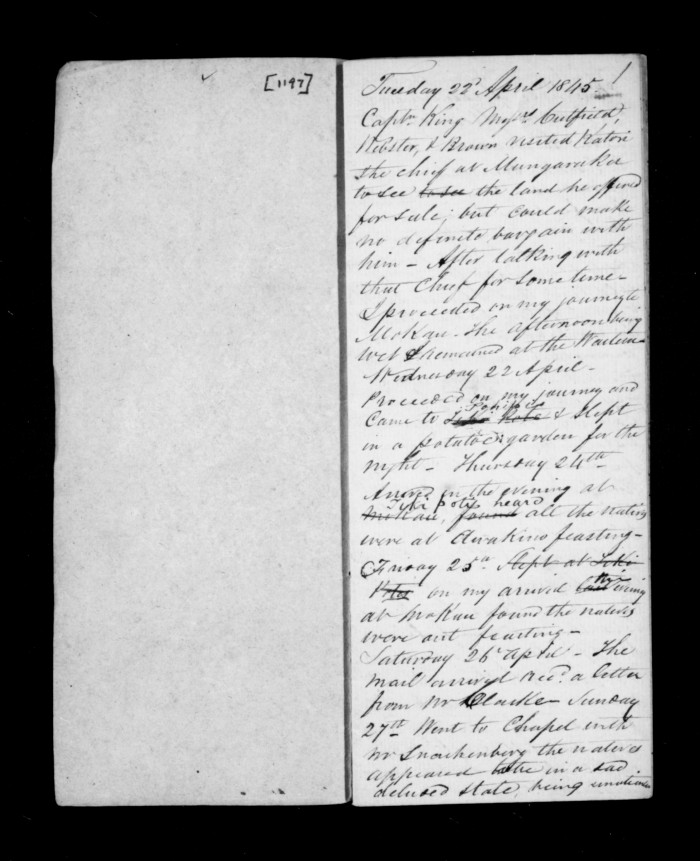 [1197]
1
Tuesday 22d April 1845.
Captn King Messrs Cutfield,
Webster, & Brown visited Katori
the chief at Mungaraka
to see to see the land he offered
for sale; but could make
no definite bargain with
him - After talking with
that Chief for some time -
I proceeded on my journey to
Mokau - The afternoon being
wet I remained at the
Wednesday 22 April -
Proceeded on my journey and
Came to & Slept
in a potatoe garden for the
night - Thursday 24th
Arrived in the evening at
Tiki poti heard
Mokau, found all the natives
were at Awakino feasting -
Friday 25th Slept at Tiki
Potii on my arrival last this evening
at Mokau found the natives
were out feasting -
Saturday 26th April - The
mail arrived recd. a letter
from Mr Clarke - Sunday
27th Went to Chapel with
Mr Snachenberg the natives
appeared to be in a sad
delused state, being